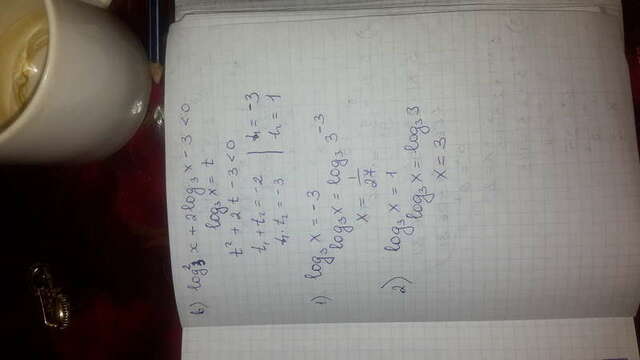 в) log₃² x + 2log₃ x - 3 < 0
log₃ x = t
t² + 2t - 3 < 0
t₁ + t₂ = -2 | t₁ = -3
t₁ · t₂ = -3 | t₂ = 1
1) log₃ x = -3
log₃ x = log₃ 3⁻³
x = 1/27
2) log₃ x = 1
log₃ x = log₃ 3
x = 3